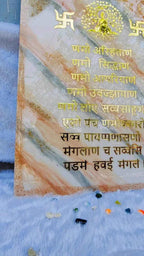 णमो अरिहंताणं
णमो सिद्धाणं
णमो आयरियाणं
णमो उवज्झायाणं
णमो लोए सव्व साहूणं
एसो पंच
सव्व पावप्पणासणो
मंगलाणं च
पडमं हवई मंगलं